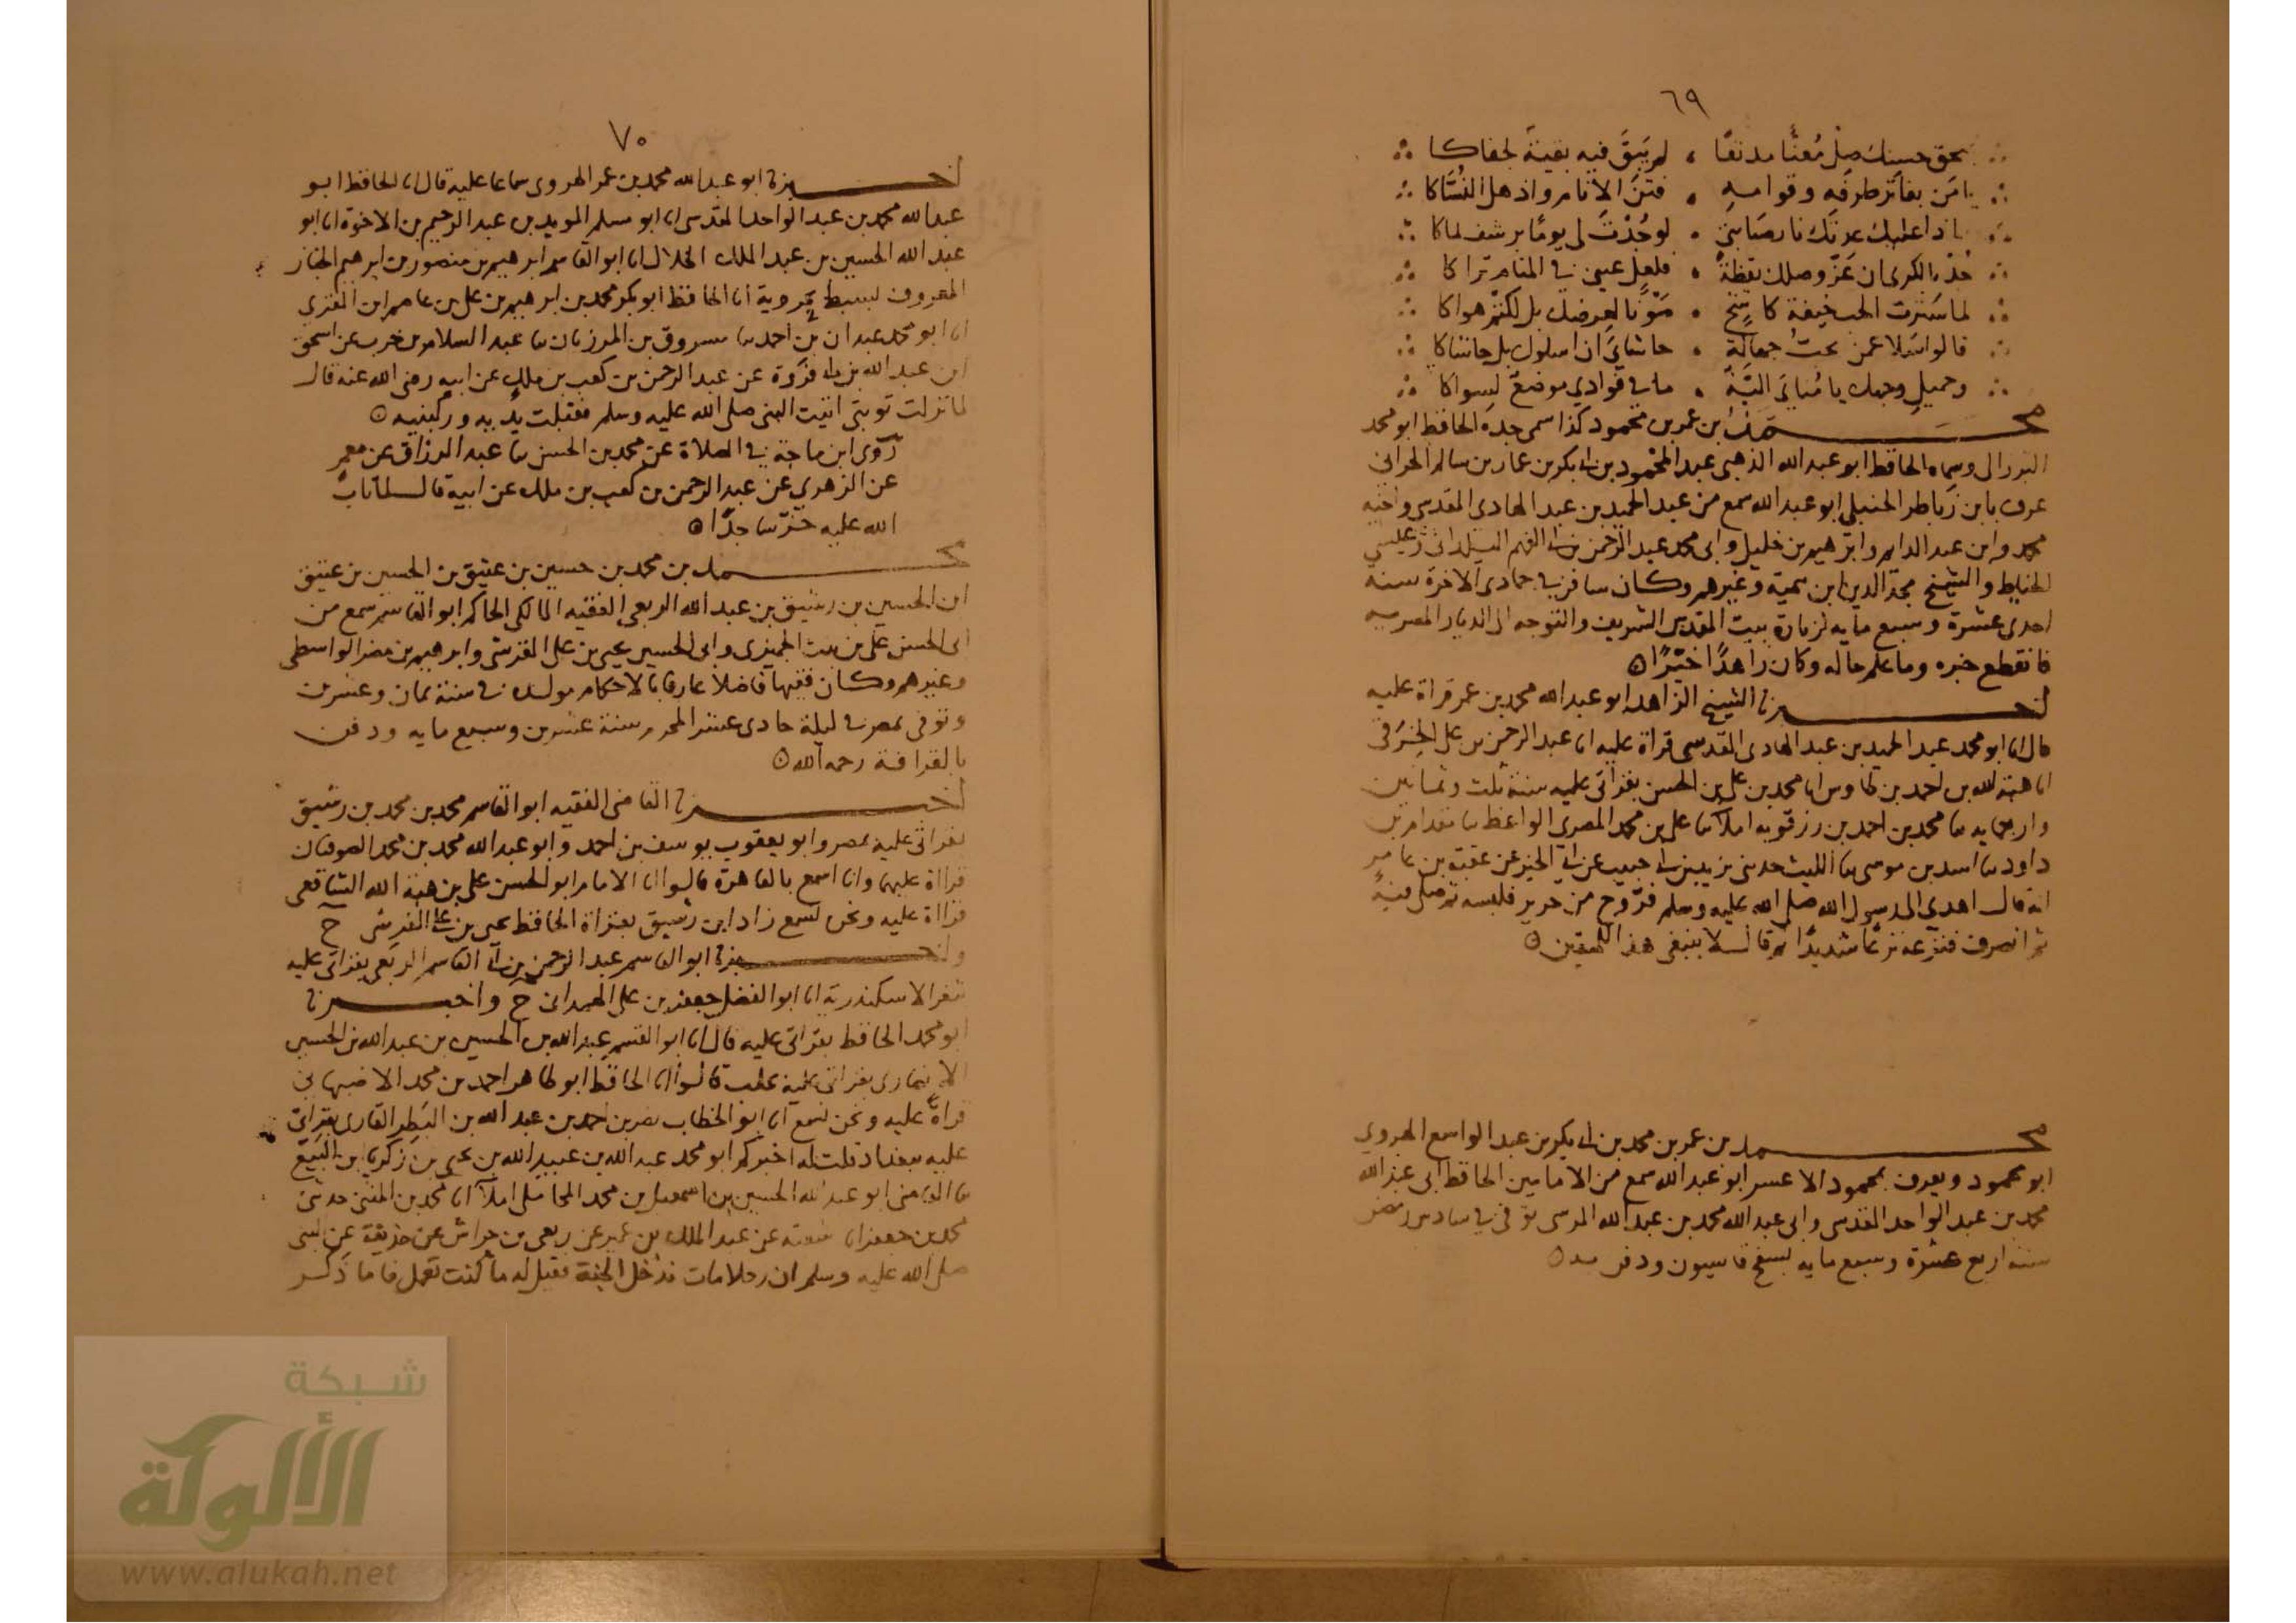 ٦٩
بحق حسنك صل مُعنًّا مدنفًا ، لم يَبقَ فيه بقية لجفاكا
يا مَن بفاتر طرفِه وقوامه ، فتنَ الأنام واذهل النُسّاكا
لو جُدْتَ لي يومًا برشف لماكا
خُذه الكرى ان عَزَّ وصلك يقظةً ، فلعل عيني في المنام تراكا
لما سَترت الحب خيفة كاشح ، صَوْنًا لعرضك بل لكثر هواكا
قالوا سَلا عمن تحبّ جهالة ، حاشاي ان اسلوك بل حاشاكا
وجميلِ وجهك يا مُنائيَ ، ما في فوادي موضعٌ لسواكا
محمد بن عمر بن محمود كذا سمى جده الحافظ ابو محمد
البرزالى وسماه الحافظ ابو عبد الله الذهبى عبد المحمود بن ابى بكر بن عمار بن سالم الحرانى
عرف بابن زباطر الحنبلى ابو عبد الله سمع من عبد الحميد بن عبد الهادى المقدسى واخيه
محمد وابن عبد الدايم وابرهيم بن خليل وابى محمد عبد الرحمن بن ابى الفهم اليلدانى
والشيخ مجد الدين ابن تيمية وغيرهم وكان سافر فى جمادى الاخرة سنة
احدى عشرة وسبع مايه لزيارة بيت المقدس الشريف والتوجه الى الديار المصريه
فانقطع خبره وما علم حاله وكان زاهدًا خيّرًا
اخبرنا الشيخ الزاهد ابو عبد الله محمد بن عمر قراة عليه
قال انا ابو محمد عبد الحميد بن عبد الهادى المقدسى قراة عليه انا عبد الرحمن بن على الخِرَقى
انا هبة الله بن احمد بن طاوس انا محمد بن على بن الحسن بقراتى عليه سنة ثلث وثمانين
واربعمايه نا محمد بن احمد بن رزقويه املآ نا على بن محمد المصرى الواعظ نا مقدام بن
داود نا اسد بن موسى نا الليث حدثنى يزيد بن ابى حبيب عن ابى الخير عن عقبة بن عامر
انه قال اهدى الى رسول الله صلى الله عليه وسلم فرّوج من حرير فلبسه ثم صلى فيه
ثم انصرف فنزعه نزعًا شديدًا ثم قال لا ينبغى هذا للمتقين
محمد بن عمر بن محمد بن ابى بكر بن عبد الواسع الهروي
ابو محمود ويعرف بمحمود الاعسر ابو عبد الله سمع من الامامين الحافظ ابى عبد الله
محمد بن عبد الواحد المقدسى وابى عبد الله محمد بن عبد الله المرسى توفى فى سادس
سنة اربع عشرة وسبع مايه بسفح قاسيون ودفن به
٧٠
اخبرنا ابو عبد الله محمد بن عمر الهروى سماعا عليه قال انا الحافظ ابو
عبد الله محمد بن عبد الواحد المقدسى انا ابو مسلم المويد بن عبد الرحيم بن الاخوة انا ابو
عبد الله الحسين بن عبد الملك الخلال انا ابو القاسم ابرهيم بن منصور بن ابرهيم الخباز
المعروف بسبط بحرويه انا الحافظ ابو بكر محمد بن ابرهيم بن على بن عاصم ابن المقرى
انا ابو محمد عبدان بن احمد نا مسروق بن المرزبان نا عبد السلام بن حرب عن اسحق
ابن عبد الله بن ابى فروة عن عبد الرحمن بن كعب بن ملك عن ابيه رضى الله عنه قال
لما نزلت توبتى اتيت النبى صلى الله عليه وسلم فقبلت يديه وركبتيه
رَوى ابن ماجة فى الصلاة عن محمد بن الحسن نا عبد الرزاق عن معمر
عن الزهري عن عبد الرحمن بن كعب بن ملك عن ابيه قال لما تاب
الله عليه خرّ ساجدًا
محمد بن محمد بن حسين بن عتيق بن الحسين بن عتيق
ابن الحسين بن رشيق بن عبد الله الربعى الفقيه المالكى الحاكم ابو القاسم سمع من
ابى الحسن على بن بنت الجميزى وابى الحسين يحيى بن على القرشى وابرهيم بن مضر الواسطى
وغيرهم وكان فقيها فاضلا عارفا بالاحكام مولده فى سنة ثمان وعشرين
وتوفى بمصر فى ليلة حادى عشر المحرم سنة عشرين وسبع مايه ودفن
بالقرافة رحمه الله
اخبرنا القاضى الفقيه ابو القاسم محمد بن محمد بن رشيق
بقراتى عليه بمصر وابو يعقوب يوسف بن احمد وابو عبد الله محمد بن محمد الصوفيان
قرااة عليهما وانا اسمع بالقاهرة قالوا انا الامام ابو الحسن على بن هبة الله الشافعى
قرااة عليه ونحن نسمع زاد ابن رشيق بقراة الحافظ يحيى بن على القرشى ح
واخبرنا ابو القاسم عبد الرحمن بن ابى القاسم الربعى بقراتى عليه
بثغر الاسكندرية انا ابو الفضل جعفر بن على الهمدانى ح واخبرنا
ابو محمد الحافظ بقراتى عليه قال انا ابو القسم عبد الله بن الحسين بن عبد الله بن الحسين
الانصارى بقراتى عليه بحلب قالوا انا الحافظ ابو طاهر احمد بن محمد الاصبهانى
قراةً عليه ونحن نسمع انا ابو الخطاب نصر بن احمد بن عبد الله بن البَطِر القارى بقراتى
عليه ببغداد قلت له اخبركم ابو محمد عبد الله بن عبيد الله بن يحيى بن زكريا بن البَيّع
نا القاضى ابو عبد الله الحسين بن اسمعيل بن محمد المحاملى املآ انا محمد بن المثنى حدثنى
محمد بن جعفر انا شعبة عن عبد الملك بن عمير عن ربعى بن حراش عن حذيفة عن النبى
صلى الله عليه وسلم ان رجلا مات فدخل الجنة فقيل له ما كنت تعمل فاما ذكر
شبكة
الألوكة
www.alukah.net